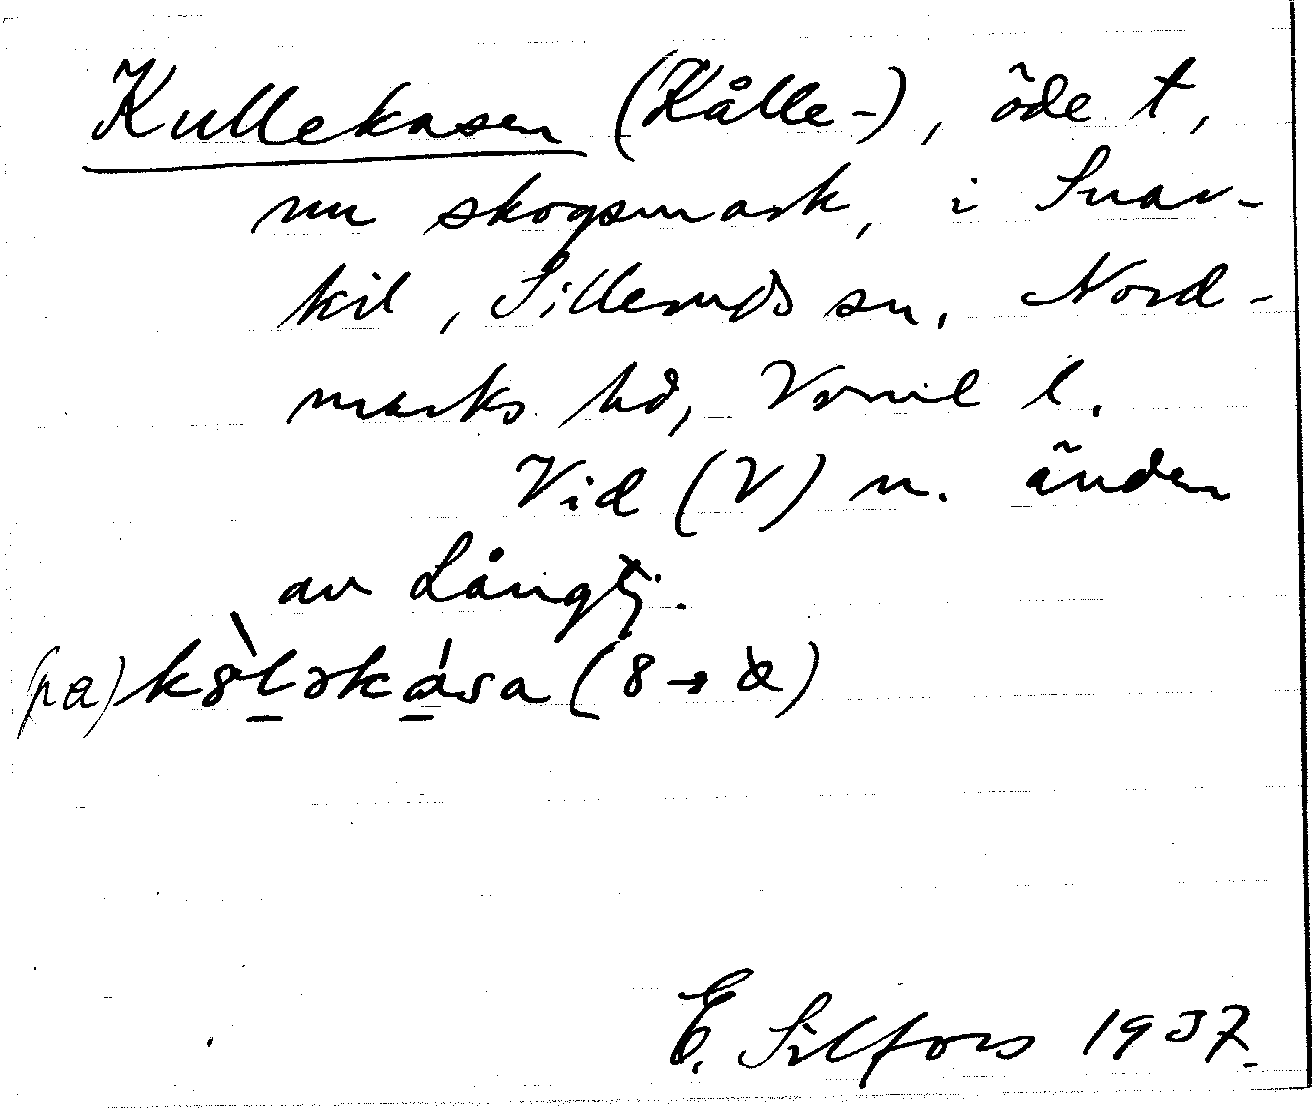 Kullekasen (Kålle-), öde t,
nu skogsmark, i Snar-
kil, Silleruds sn, Nord-
marks hd, Värml l.
Vid (V) n. änden
av Långtj.
(pa) k8̀ləkása (8 → å̀)
E. Silfors 1937.